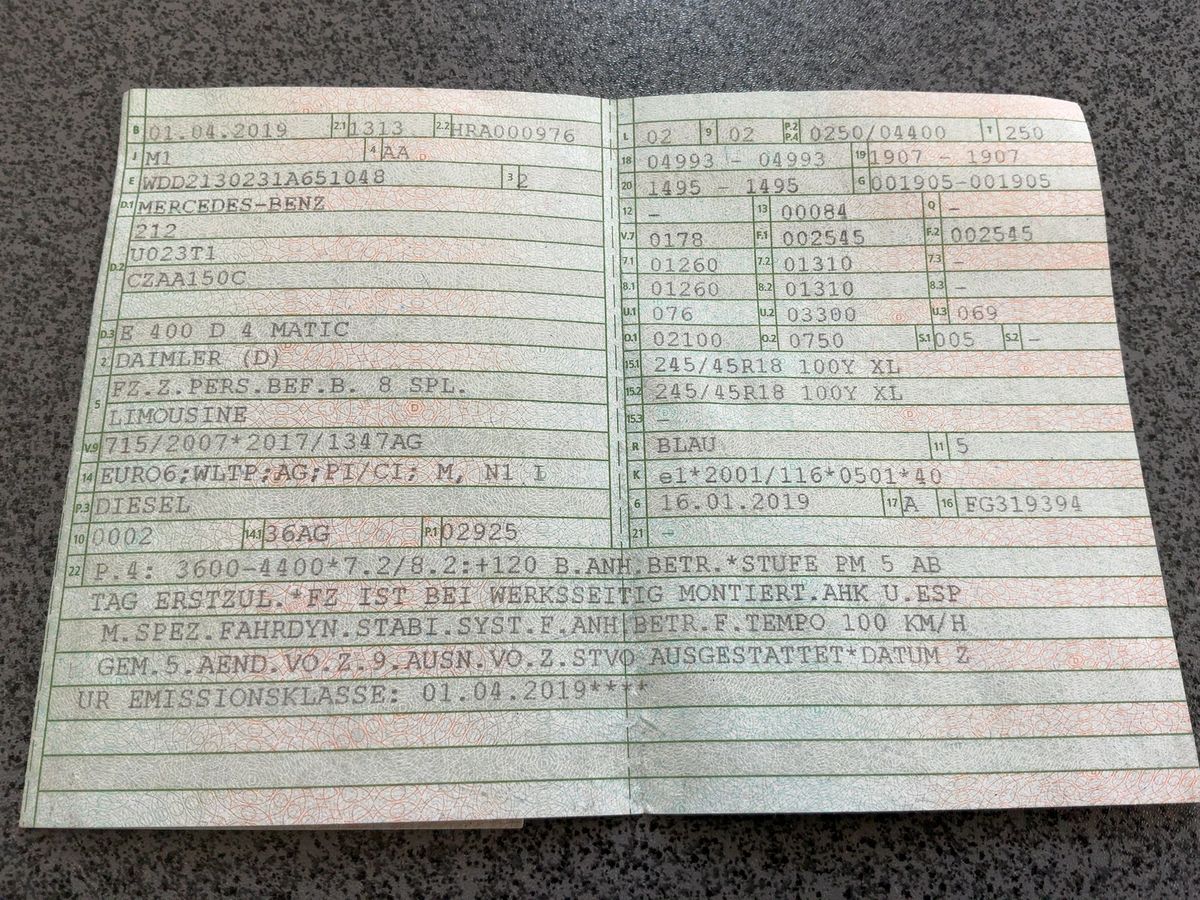 B 01.04.2019 2.1 1313 2.2 HRA000976
J M1 4 AA
E WDD2130231A651048 3 2
D.1 MERCEDES-BENZ
212
D.2 U023T1
CZAA150C
D.3 E 400 D 4 MATIC
2 DAIMLER (D)
5 FZ.Z.PERS.BEF.B. 8 SPL.
LIMOUSINE
V.9 715/2007*2017/1347AG
14 EURO6;WLTP;AG;PI/CI; M, N1 I
P.3 DIESEL
10 0002 14.1 36AG P.1 02925
L 02 9 02 P.2 P.4 0250/04400 T 250
18 04993 - 04993 19 1907 - 1907
20 1495 - 1495 G 001905-001905
12 - 13 00084 Q -
V.7 0178 F.1 002545 F.2 002545
7.1 01260 7.2 01310 7.3 -
8.1 01260 8.2 01310 8.3 -
U.1 076 U.2 03300 U.3 069
O.1 02100 O.2 0750 S.1 005 S.2 -
15.1 245/45R18 100Y XL
15.2 245/45R18 100Y XL
15.3 -
R BLAU 11 5
K e1*2001/116*0501*40
6 16.01.2019 17 A 16 FG319394
21 -
22 P.4: 3600-4400*7.2/8.2:+120 B.ANH.BETR.*STUFE PM 5 AB
TAG ERSTZUL.*FZ IST BEI WERKSSEITIG MONTIERT.AHK U.ESP
M.SPEZ.FAHRDYN.STABI.SYST.F.ANH BETR.F.TEMPO 100 KM/H
GEM.5.AEND.VO.Z.9.AUSN.VO.Z.STVO AUSGESTATTET*DATUM Z
UR EMISSIONSKLASSE: 01.04.2019****